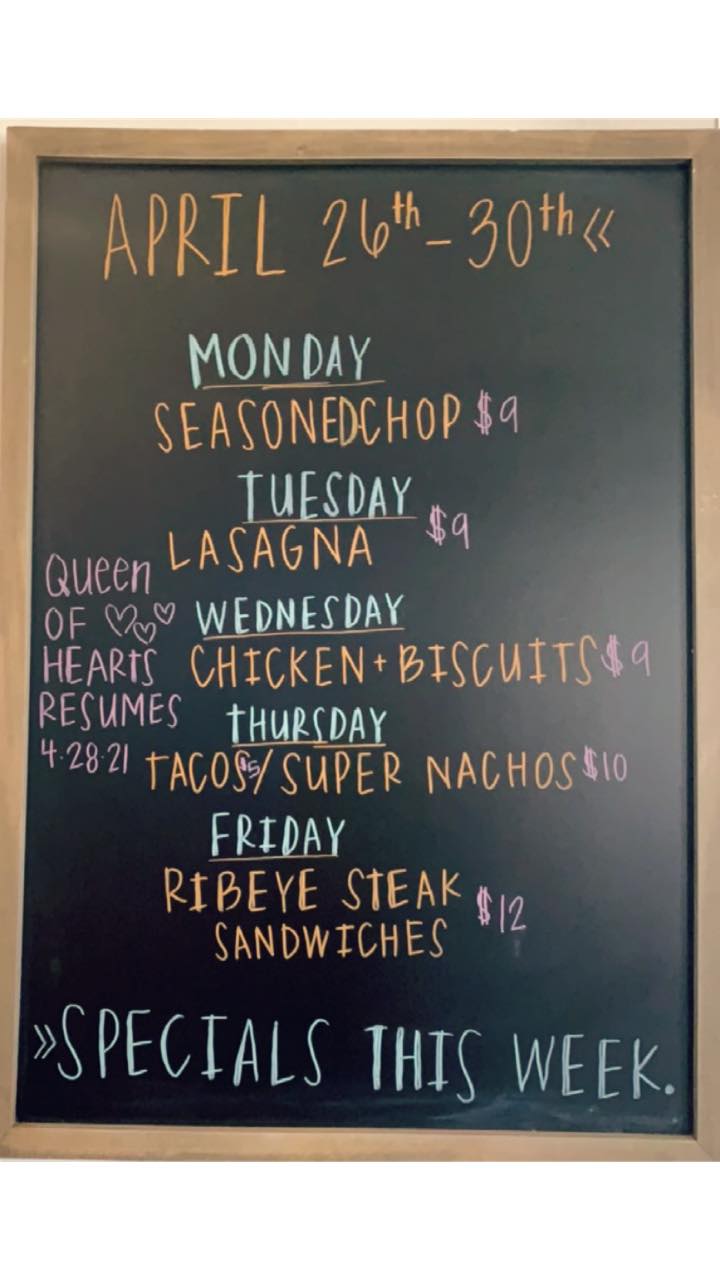 APRIL 26th - 30th «
MONDAY
SEASONED CHOP $9
TUESDAY
LASAGNA $9
WEDNESDAY
CHICKEN + BISCUITS $9
THURSDAY
TACOS $5 / SUPER NACHOS $10
FRIDAY
RIBEYE STEAK
SANDWICHES $12
Queen
OF ♡♡♡
HEARTS
RESUMES
4.28.21
» SPECIALS THIS WEEK.